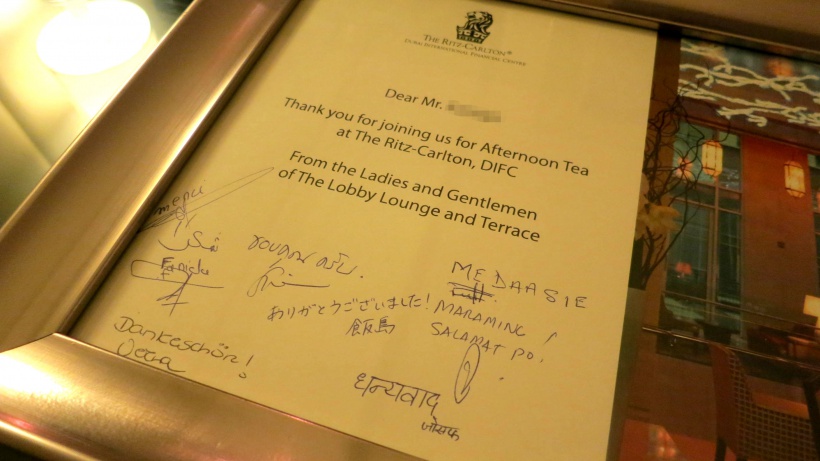 THE RITZ-CARLTON®
DUBAI INTERNATIONAL FINANCIAL CENTRE
Dear Mr.
Thank you for joining us for Afternoon Tea
at The Ritz-Carlton, DIFC
From the Ladies and Gentlemen
of The Lobby Lounge and Terrace
merci
ขอบคุณครับ
MEDAASIE
ありがとうございました!
飯島
MARAMING
SALAMAT PO!
Dankeschön!
Vera
धन्यवाद
जोसफ